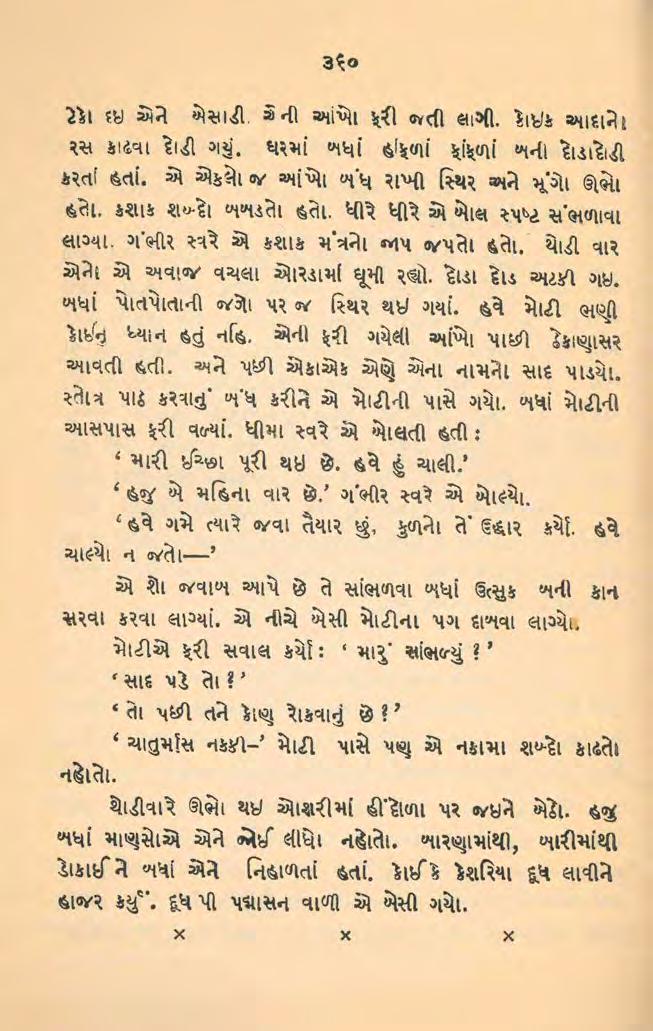 ૩૬૦
ટેકો દઇ એને બેસાડી. એની આંખો ફરી જતી લાગી. કોઇક આદાનો
રસ કાઢવા દોડી ગયું. ઘરમાં બધાં હાંફળાં ફાંફળાં બની દોડાદોડી
કરતાં હતાં. એ એકલો જ આંખો બંધ રાખી સ્થિર અને મૂંગો ઊભો
હતો. કશાક શબ્દો બબડતો હતો. ધીરે ધીરે એ બોલ સ્પષ્ટ સંભળાવા
લાગ્યા. ગંભીર સ્વરે એ કશાક મંત્રનો જાપ જપતો હતો. થોડી વાર
એનો એ અવાજ વચલા ઓરડામાં ઘૂમી રહ્યો. દોડા દોડ અટકી ગઇ.
બધાં પોતપોતાની જગો પર જ સ્થિર થઇ ગયાં. હવે મોટી ભણી
કોઇનું ધ્યાન હતું નહિ. એની ફરી ગયેલી આંખો પાછી ઠેકાણાસર
આવતી હતી. અને પછી એકાએક એણે એના નામનો સાદ પાડયો.
સ્તોત્ર પાઠ કરવાનું બંધ કરીને એ મોટીની પાસે ગયો. બધાં મોટીની
આસપાસ ફરી વળ્યાં. ધીમા સ્વરે એ બોલતી હતી :
‘ મારી ઈચ્છા પૂરી થઇ છે. હવે હું ચાલી.’
‘ હજુ બે મહિના વાર છે.’ ગંભીર સ્વરે એ બોલ્યો.
‘ હવે ગમે ત્યારે જવા તૈયાર છું, કુળનો તેં ઉદ્ધાર કર્યો. હવે
ચાલ્યો ન જતો—’
એ શો જવાબ આપે છે તે સાંભળવા બધાં ઉત્સુક બની કાન
સરવા કરવા લાગ્યાં. એ નીચે બેસી મોટીના પગ દાબવા લાગ્યો.
મોટીએ ફરી સવાલ કર્યો : ‘ મારું સાંભળ્યું ? ’
‘ સાદ પડે તો ? ’
‘ તો પછી તને કોણ રોકવાનું છે ? ’
‘ ચાતુર્માસ નકકી–’ મોટી પાસે પણ એ નકામા શબ્દો કાઢતો
નહોતો.
થોડીવારે ઊભો થઇ ઓશરીમાં હીંદોળા પર જઇને બેઠો. હજુ
બધાં માણસોએ એને જોઈ લીધો નહોતો. બારણામાંથી, બારીમાંથી
ડોકાઈ ને બધાં એને નિહાળતાં હતાં. કોઈ કે કેશરિયા દૂધ લાવીને
હાજર કર્યું. દૂધ પી પદ્માસન વાળી એ બેસી ગયો.
× × ×